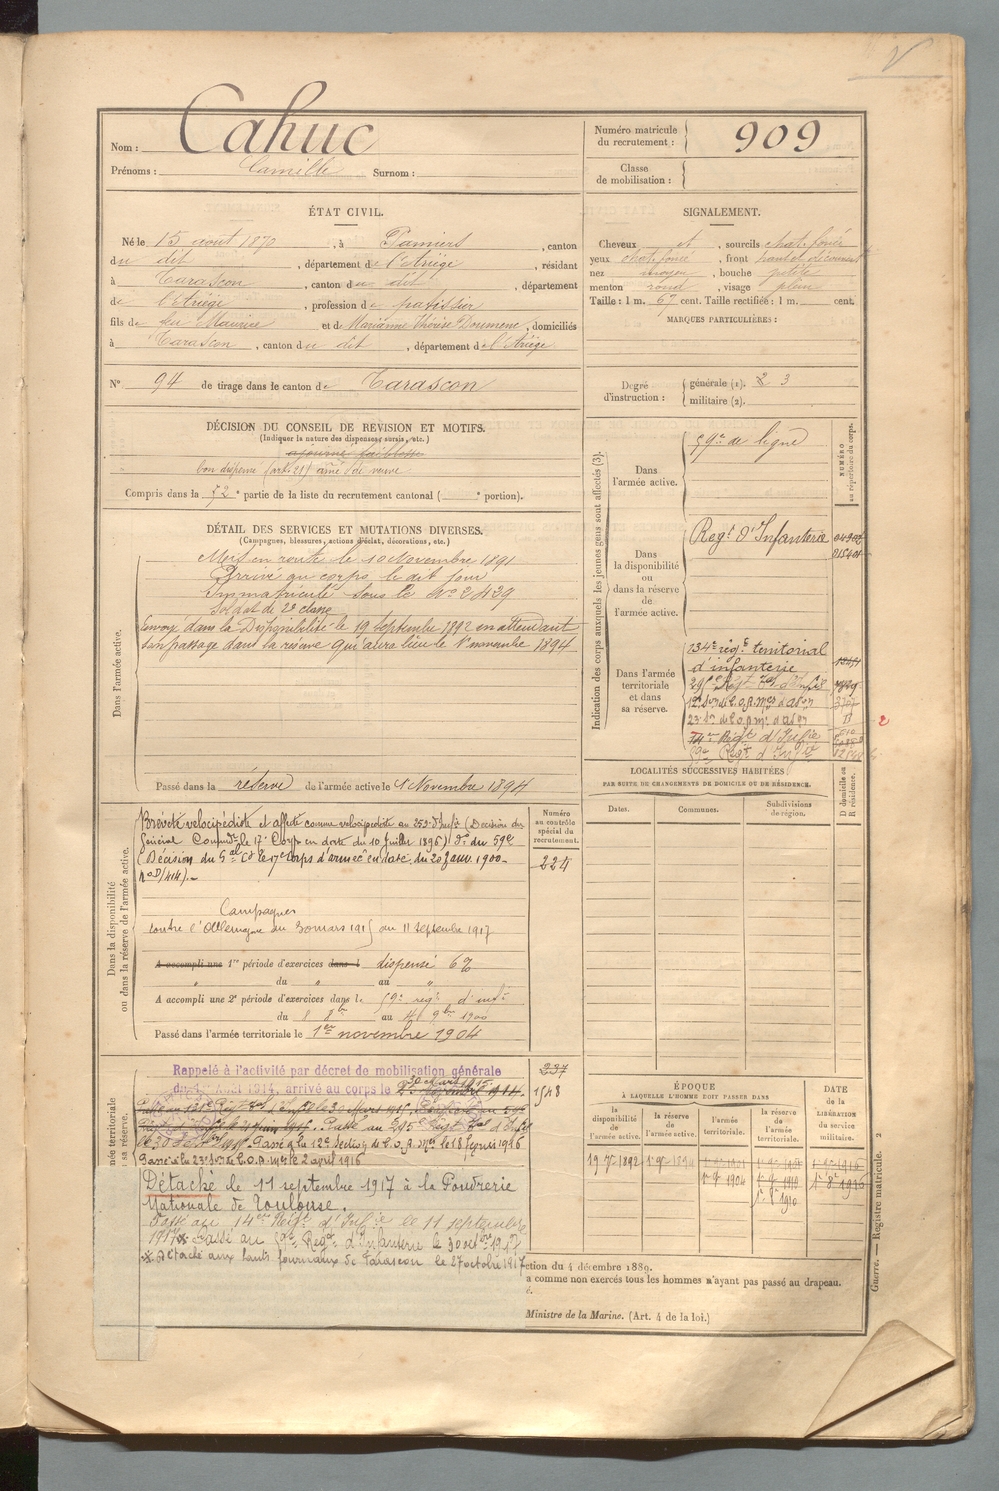 Nom : Cahuc
Prénoms : Camille Surnom :
Numéro matricule du recrutement : 909
Classe de mobilisation :
ÉTAT CIVIL.
Né le 15 aout 1870, à Pamiers, canton
du dit, département de l'Ariège, résidant
à Tarascon, canton du dit, département
de l'Ariège, profession de patissier
fils de feu Maurice et de Marianne Thérèse Doumenc, domiciliés
à Tarascon, canton du dit, département de l'Ariège
N° 94 de tirage dans le canton de Tarascon
SIGNALEMENT.
Cheveux et, sourcils chat. foncé
yeux chat. foncé, front haut et découvert
nez moyen, bouche petite
menton rond, visage plein
Taille : 1 m. 67 cent. Taille rectifiée : 1 m. cent.
MARQUES PARTICULIÈRES :
Degré d'instruction : générale (1). 2 3
militaire (2).
DÉCISION DU CONSEIL DE RÉVISION ET MOTIFS.
(Indiquer la nature des dispenses, sursis, etc.)
ajourné faiblesse
bon dispensé (art. 21) aîné de veuve
Compris dans la 72e partie de la liste du recrutement cantonal ( e portion).
DÉTAIL DES SERVICES ET MUTATIONS DIVERSES.
(Campagnes, blessures, actions d'éclat, décorations, etc.)
Dans l'armée active.
Mis en route le 10 Novembre 1891
Arrivé au corps le dit jour
Immatriculé sous le No 2439
Soldat de 2e classe
Envoyé dans la Disponibilité le 19 septembre 1892 en attendant
son passage dans la réserve qui aura lieu le 1er novembre 1894
Passé dans la réserve de l'armée active le 1er Novembre 1894
Indication des corps auxquels les jeunes gens sont affectés (3).
NUMÉRO au répertoire du corps.
Dans l'armée active.
59e de ligne
Dans la disponibilité ou dans la réserve de l'armée active.
Regt d'Infanterie
Dans l'armée territoriale et dans sa réserve.
134e régt territorial
d'infanterie
12e Son de C.O.A. Mres d'a
23e Son de C.O.A. Mre d'a
14e Régt d'Infie
59e Regt d'Infie
Dans la disponibilité ou dans la réserve de l'armée active.
Breveté vélocipédiste et affecté comme vélocipédiste au 259e d'Infie (Décision du
Général Commandt le 17e Corps en date du 10 Juillet 1896) do du 59e
(Décision du Gal Ct le 17e corps d'armée en date du 20 Janv. 1900-
no D/414).-
Campagnes
contre l'Allemagne du 30 mars 1915 au 11 septembre 1917
A accompli une 1re période d'exercices dans l dispensé 6%
du " au "
A accompli une 2e période d'exercices dans le 59e régt d'infie
du 8 8bre au 4 9bre 1900
Passé dans l'armée territoriale le 1er novembre 1904
Numéro au contrôle spécial du recrutement.
224
237
1548
LOCALITÉS SUCCESSIVES HABITÉES
PAR SUITE DE CHANGEMENTS DE DOMICILE OU DE RÉSIDENCE.
Dates. Communes. Subdivisions de région. D domicile ou R résidence.
Rappelé à l'activité par décret de mobilisation générale
du 1er Août 1914, arrivé au corps le
30 Mars 1915.
Passé à la 12e Section de C.O.A. Mres le 18 février 1916
Passé à la 23e Son de C.O.A. Mres le 2 avril 1916
Détaché le 11 septembre 1917 à la Poudrerie
Nationale de Toulouse.
Passé au 14e Régt d'Infie le 11 septembre
1917 * Passé au 59e Regt d'Infanterie le 30 octbre 1917
* Détaché aux hauts fourneaux de Tarascon le 27 octobre 1917
ÉPOQUE
À LAQUELLE L'HOMME DOIT PASSER DANS
la disponibilité de l'armée active. la réserve de l'armée active. l'armée territoriale. la réserve de l'armée territoriale.
DATE de la LIBÉRATION du service militaire.
19 7bre 1892 1er 9bre 1894
1er 9bre 1904 1er 9bre 1910
1er 8bre 1910
ction du 4 décembre 1889.
a comme non exercés tous les hommes n'ayant pas passé au drapeau.
Ministre de la Marine. (Art. 4 de la loi.)
Guerre. — Registre matricule. 2